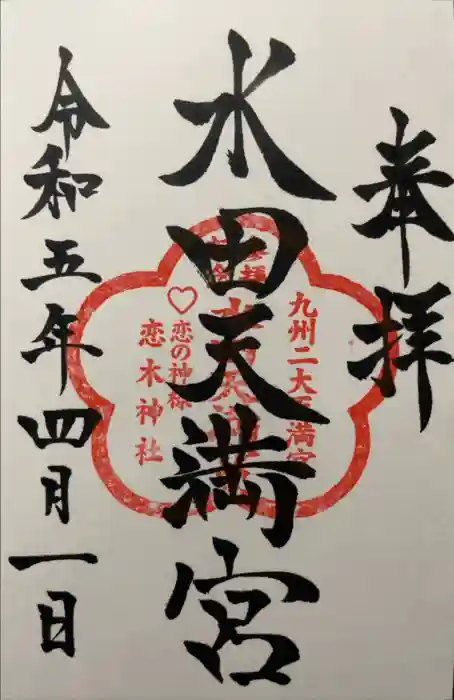 奉拝
水田天満宮
令和五年四月一日
参拝
九州二大天満宮
水田天満宮
♡恋の神様
恋木神社